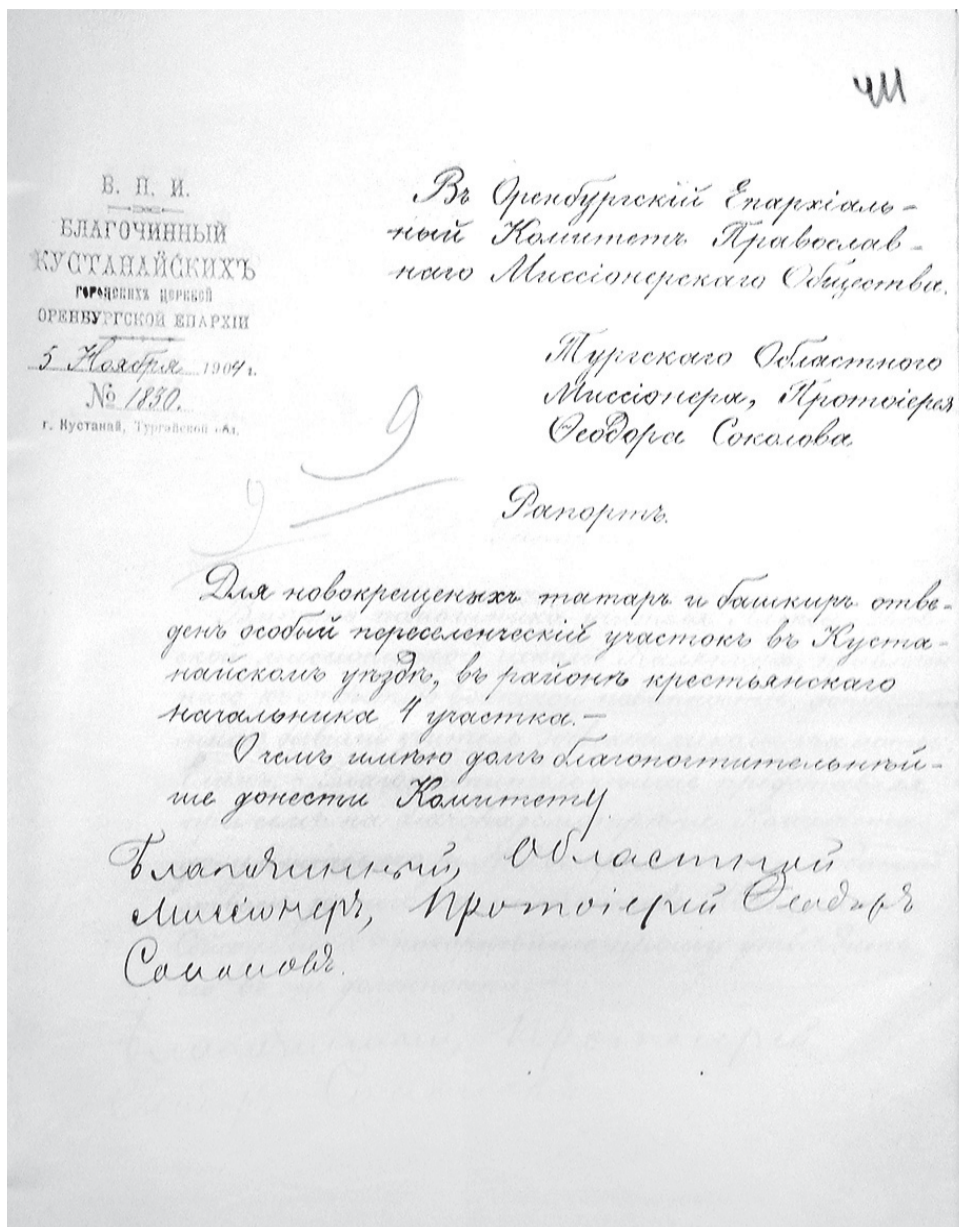 411
В. П. И.
БЛАГОЧИННЫЙ
КУСТАНАЙСКИХЪ
ГОРОДСКИХЪ ЦЕРКВЕЙ
ОРЕНБУРГСКОЙ ЕПАРХІИ
5 Ноября 1904 г.
№ 1830.
г. Кустанай, Тургайской обл.
Въ Оренбургскій Епархіаль-
ный Комитетъ Православ-
наго Миссіонерскаго Общества.
Тургскаго Областного
Миссіонера, Протоіерея
Ѳеодора Соколова
Рапортъ.
9
9
Для новокрещеныхъ татаръ и башкиръ отве-
денъ особый переселенческій участокъ въ Куста-
найскомъ уѣздѣ, въ районѣ крестьянскаго
начальника 4 участка.—
О чемъ имѣю долгъ благопочтительнѣй-
ше донести Комитету.
Благочинный, Областной
Миссіонеръ, Протоіерей Ѳеодоръ
Соколовъ.